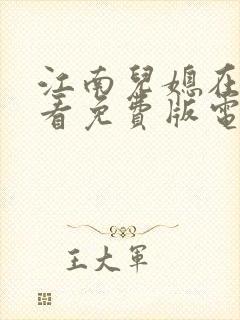 江南兒媳在
看免費版電
王大軍